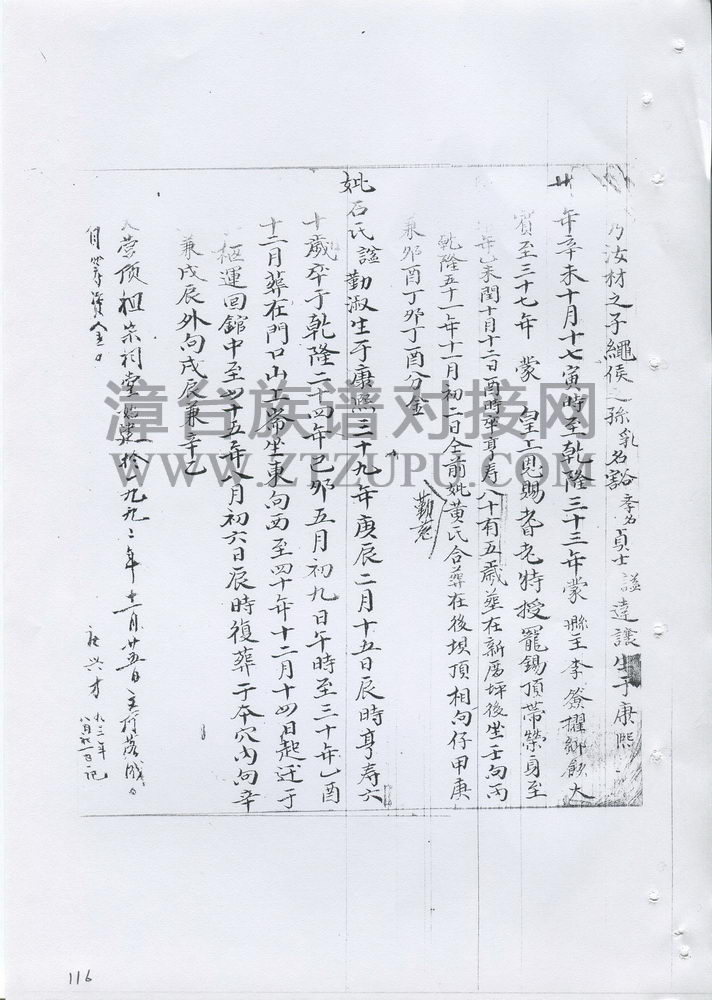 乃汝材之子繩侯之孫乳名豁 字名貞士 諡達讓生于康熙
卅年辛未十月十七寅時至乾隆三十三年蒙 縣主李簽擢鄉飲大
賓至三十七年 蒙 皇上恩賜耆老特授寵錫頂帶榮身至
年乙未閏十月十二日酉時卒享寿八十有五歲葬在新厝坪後坐壬向丙
乾隆五十一年十一月初二日仝前妣黃氏合葬在後坝頂相向仔甲庚
兼卯酉丁卯丁酉分金
勤慈
妣石氏諡勤淑生于康熙三十九年庚辰二月十五日辰時享寿六
十歲卒于乾隆二十四年己卯五月初九日午時至三十年乙酉
十二月葬在門口山上崙坐東向西至四十年十二月十四日起迁于
柩運回舘中至四十五年八月初六日辰時復葬于本穴內向辛
兼戌辰外向戌辰兼辛乙
營頂祖宗祠堂始建於一九九二年十一月廿五日主行落成
九三年
八月廿一日記
漳台族谱对接网
WWW.ZTZUPU.COM
116